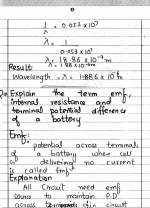 1/λ = 0.053 × 10⁷
λ = 1 / 0.053 × 10⁷
λ = 18.86 × 10⁻⁷ m
λ = 1.88 × 10⁻⁶ m
Result:
Wavelength = λ = 1.886 × 10⁻⁶ m
Explain the term emf,
internal resistance and
terminal potential difference
of a battery
Emf:
potential across terminals
of a battery when cell
delivering no current
is called Emf
Explanation
All Circuit need emf
source to maintain P.D
across in circuit